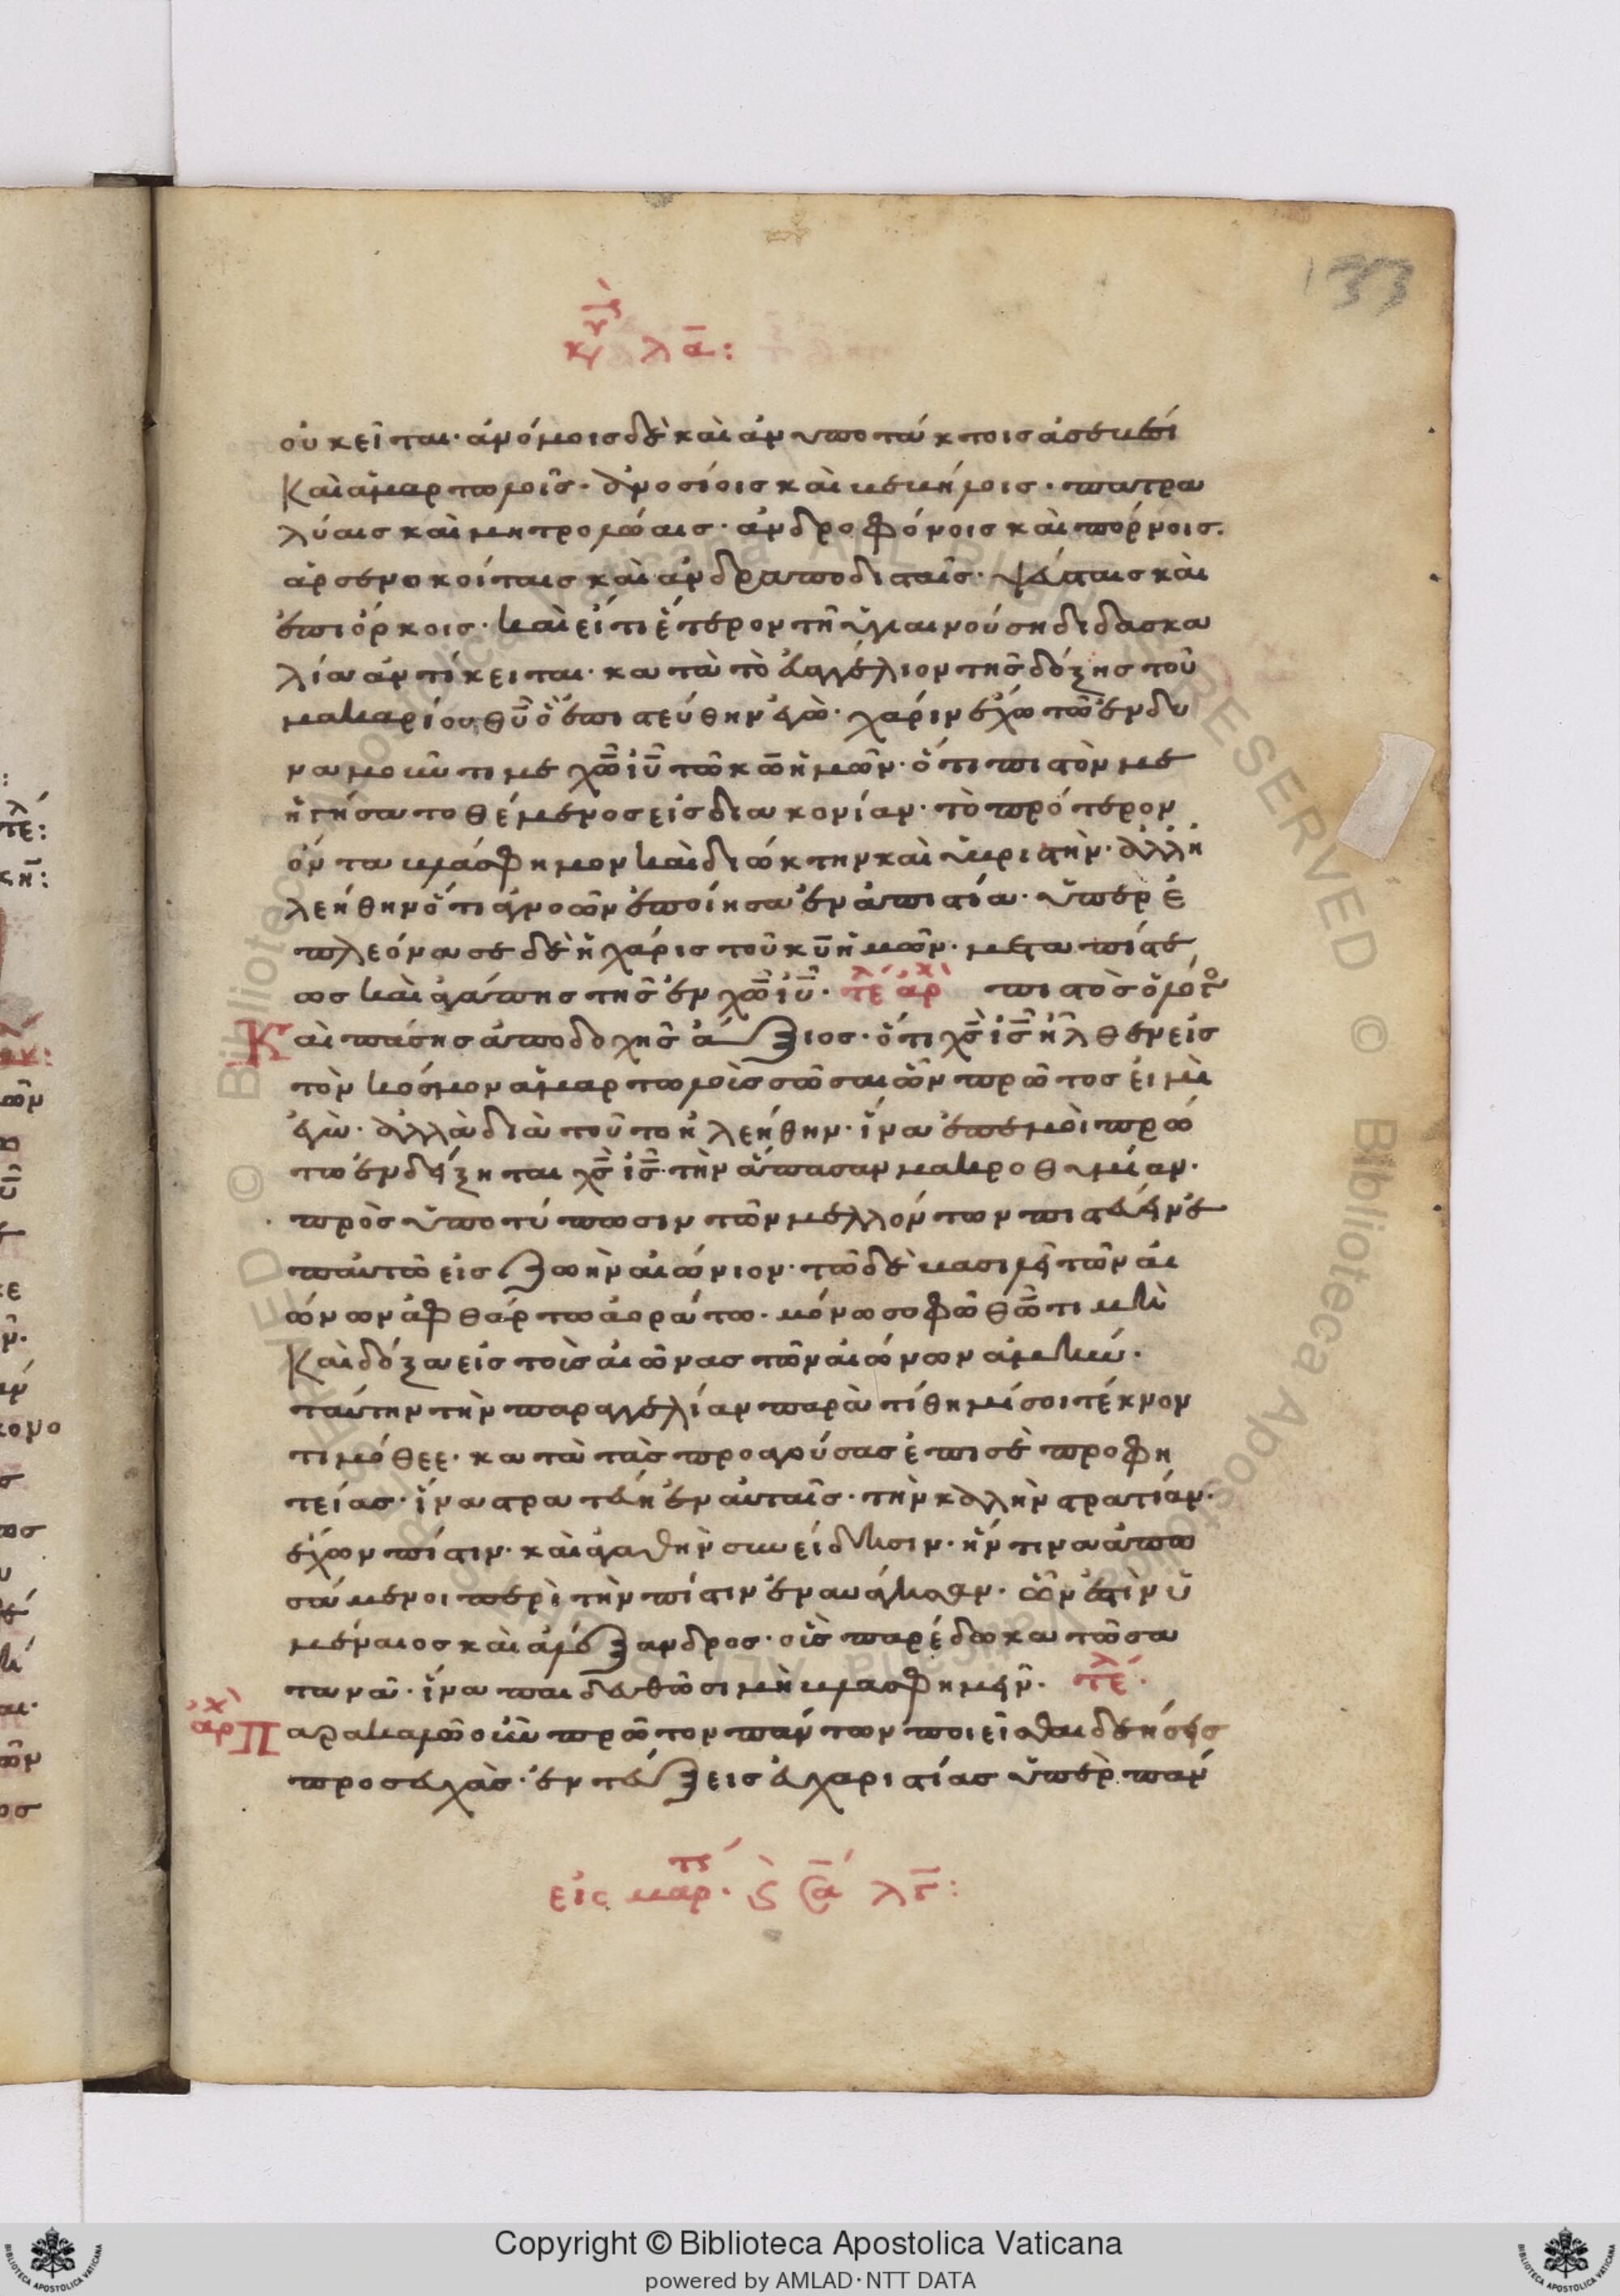 133
κυ λα:
οὐ κεῖται· ἀνόμοις δὲ καὶ ἀνυποτάκτοις ἀσεβέσι
Καὶ ἁμαρτωλοῖς· ἀνοσίοις καὶ βεβήλοις· πατρα
λύαις καὶ μητρολώαις· ἀνδροφόνοις καὶ πόρνοις.
ἀρσενοκοίταις καὶ ἀνδραποδισταῖς· ψεύσταις καὶ
ἐπιόρκοις· καὶ εἴ τι ἕτερον τῇ ὑγιαινούση διδασκα
λία ἀντίκειται· κατὰ τὸ εὐαγγέλιον τῆς δόξης τοῦ
μακαρίου θῦ ὃ ἐπιστεύθην ἐγὼ· χάριν ἔχω τῶ ἐνδυ
ναμοῦντι με χῶ ἰῦ τῶ κῶ ἡμῶν· ὅτι πιστὸν με
ἡγήσατο θέμενος εἰς διακονίαν· τὸ πρότερον
ὄντα βλάσφημον καὶ διώκτην καὶ ὑβριστὴν· ἀλλ' ἠ
λεήθην ὅτι ἀγνοῶν ἐποίησα ἐν ἀπιστία· ὑπερε
πλεόνασε δὲ ἡ χάρις τοῦ κῦ ἡμῶν· μετα πίστε
ως καὶ ἀγάπης τῆς ἐν χῶ ἰῦ· τέλ ἀρχ πιστὸς ὁ λόγος
Καὶ πάσης ἀποδοχῆς ἄξιος· ὅτι χς ἰς ἦλθεν εἰς
τὸν κόσμον ἁμαρτωλοὺς σῶσαι ὧν πρῶτος εἰμὶ
ἐγὼ· ἀλλὰ διὰ τοῦτο ἠλεήθην· ἵνα ἐπ' ἐμοὶ πρώ
τω ἐνδείξηται χς ἰς τὴν ἅπασαν μακροθυμίαν·
πρὸς ὑποτύπωσιν τῶν μελλόντων πιστεύειν ἐ
π' αὐτῶ εἰς ζωὴν αἰώνιον· τῶ δὲ βασιλεῖ τῶν αἰ
ώνων ἀφθάρτω ἀοράτω· μόνω σοφῶ θῶ τιμὴ
Καὶ δόξα εἰς τοὺς αἰῶνας τῶν αἰώνων ἀμήν·
ταύτην τὴν παραγγελίαν παρὰτίθημί σοι τέκνον
τιμόθεε· κατὰ τὰς προαγούσας ἐπὶ σὲ προφη
τείας· ἵνα στρατεύη ἐν αὐταῖς· τὴν καλὴν στρατείαν·
ἔχων πίστιν· καὶ ἀγαθὴν συνείδησιν· ἥν τινα ἀπω
σάμενοι περὶ τὴν πίστιν ἐναυάγησαν· ὧν ἐστὶν ὑ
μέναιος καὶ ἀλέξανδρος· οὓς παρέδωκα τῶ σα
τανᾶ· ἵνα παιδευθῶσι μὴ βλασφημεῖν· τέλ·
ἀρχ Παρακαλῶ οὖν πρῶτον πάντων ποιεῖσθαι δεήσεις
προσευχὰς· ἐντεύξεις εὐχαριστίας ὑπὲρ πάν
εἰς μαρτ· ϛ λγ:
Copyright © Biblioteca Apostolica Vaticana
powered by AMLAD·NTT DATA